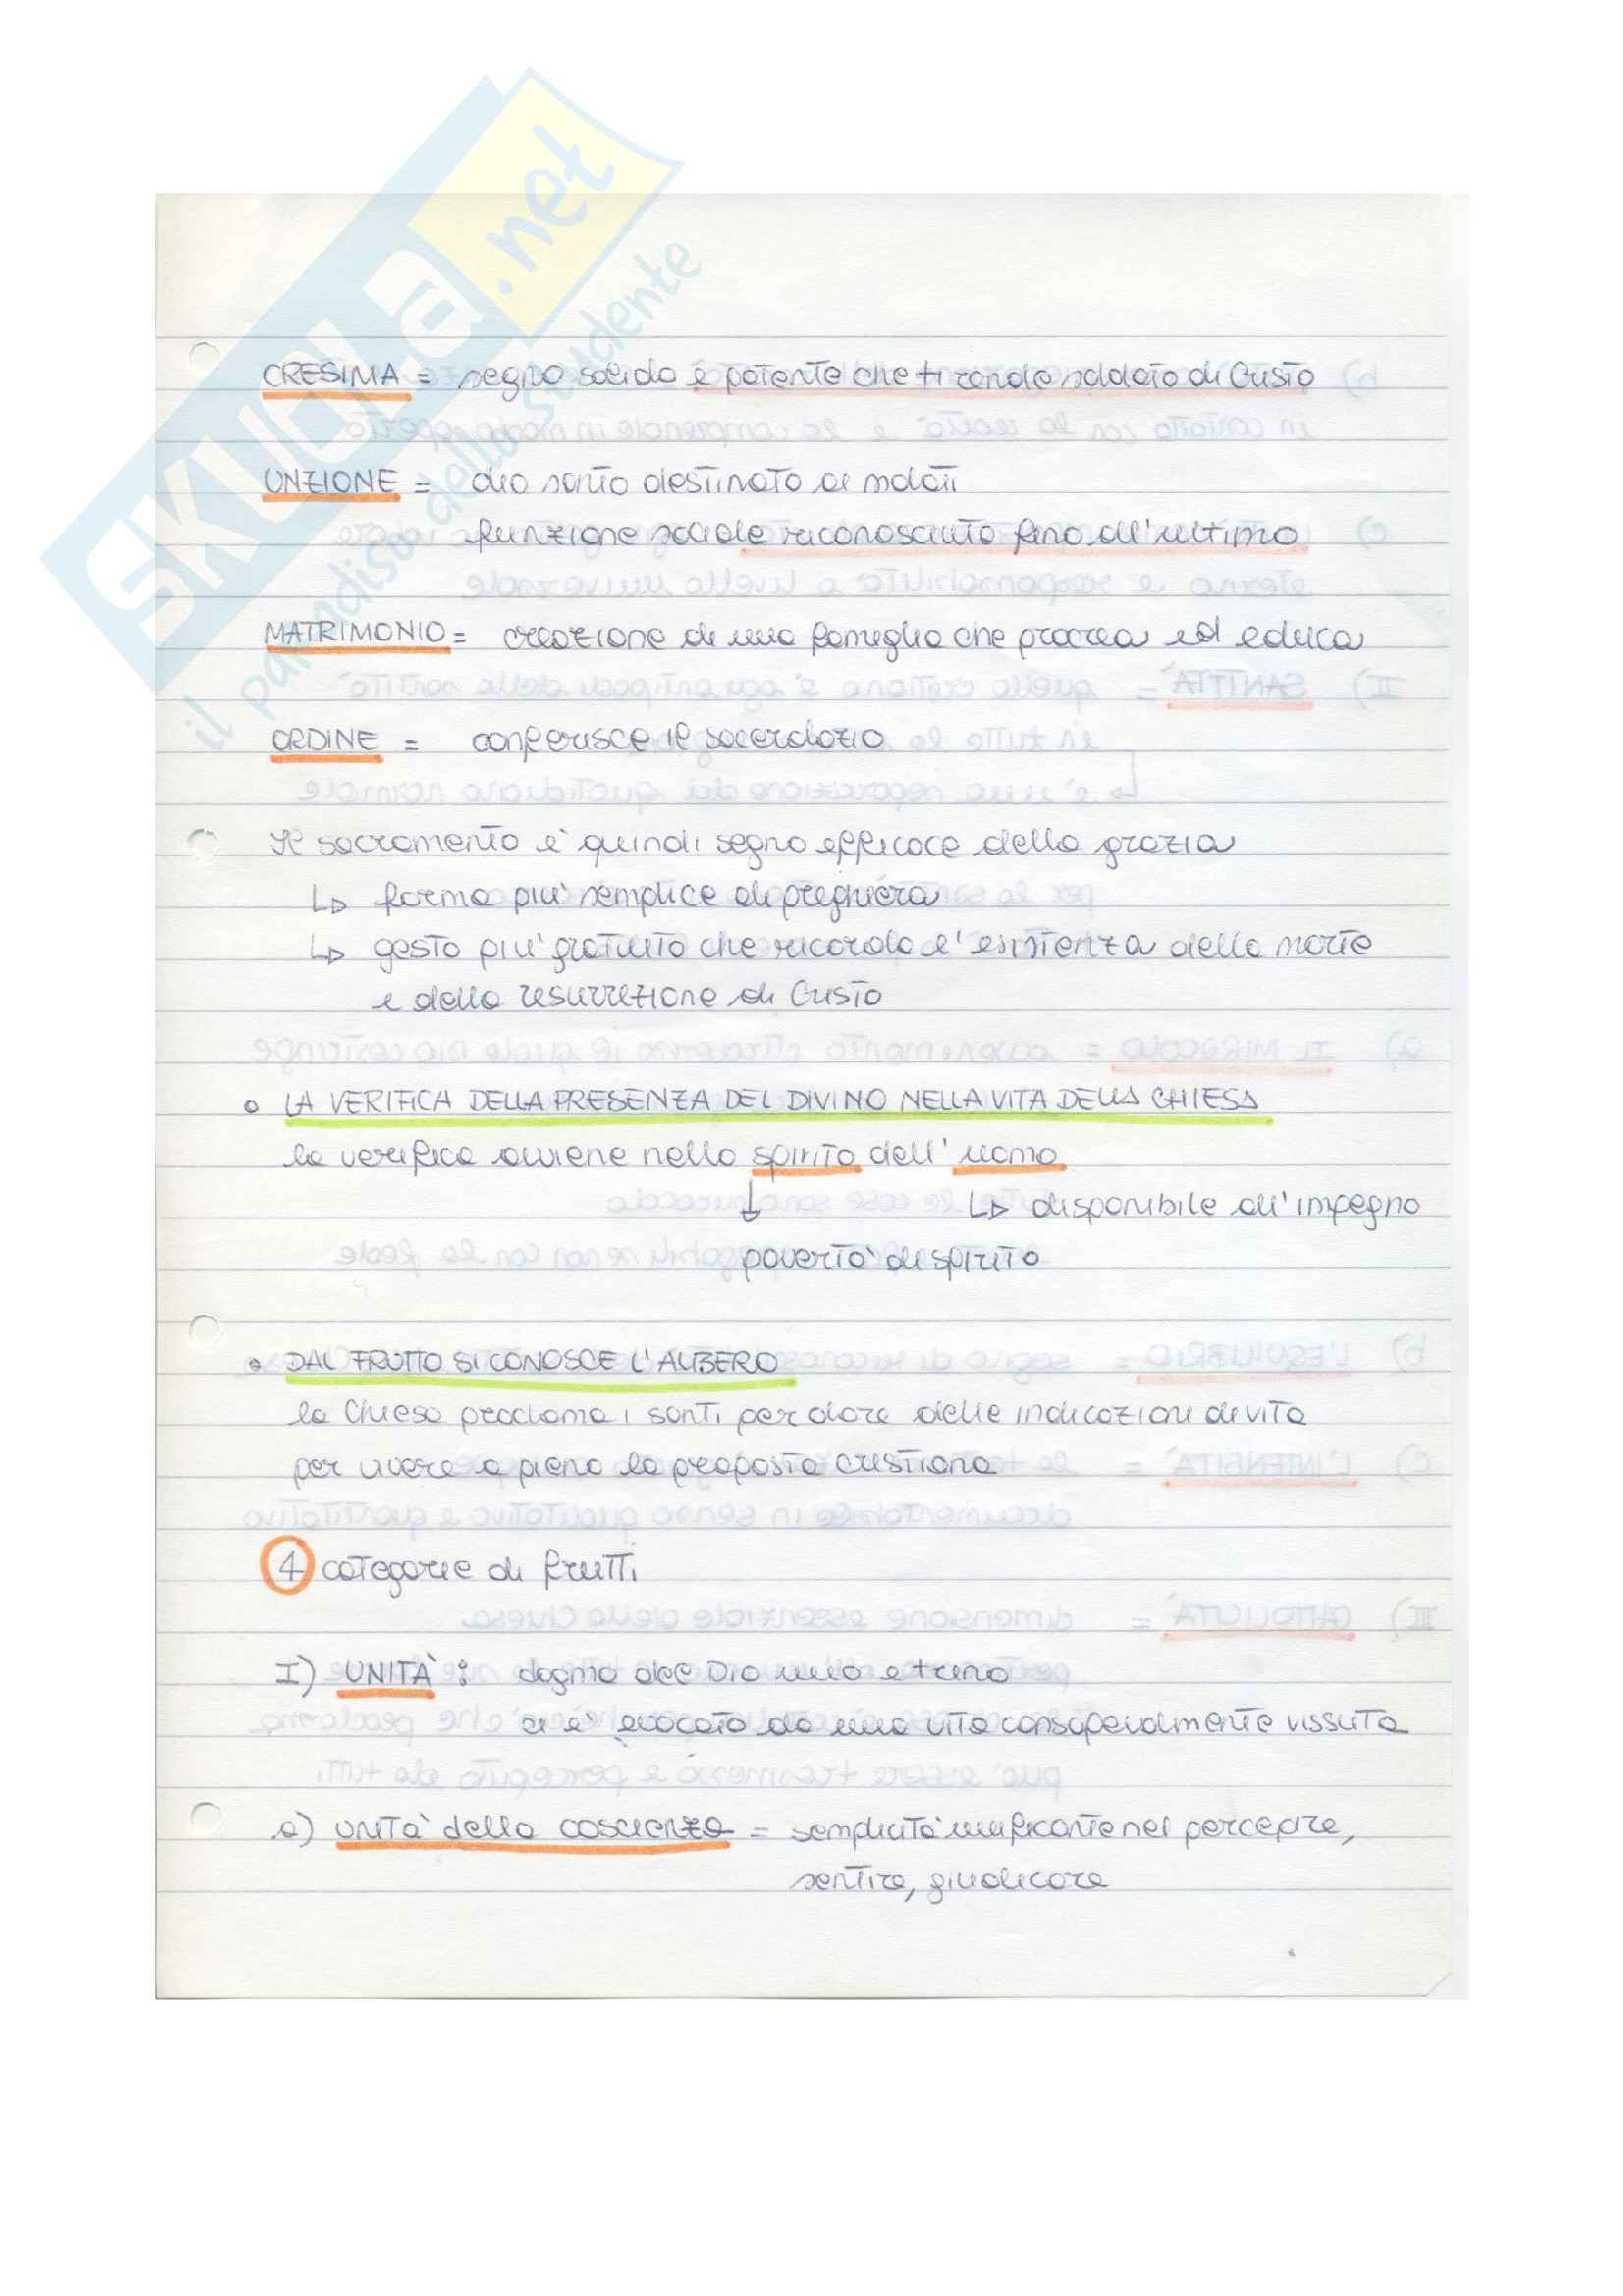 SKUOLA.net
il paradiso dello studente
CRESIMA = segno solido e potente che ti rende soldato di Cristo
UNZIONE = olio santo destinato ai malati
funzione sociale riconosciuta fino all'ultimo
MATRIMONIO = creazione di una famiglia che procrea ed educa
ORDINE = conferisce il sacerdozio
Il sacramento è quindi segno efficace della grazia
↳ forma più semplice di preghiera
↳ gesto più gratuito che ricorda l'esistenza della morte
e della resurrezione di Cristo
o LA VERIFICA DELLA PRESENZA DEL DIVINO NELLA VITA DELLA CHIESA
la verifica avviene nello spirito dell'uomo
↓ ↳ disponibile all'impegno
povertà di spirito
o DAL FRUTTO SI CONOSCE L'ALBERO
la Chiesa proclama i santi per dare delle indicazioni di vita
per vivere a pieno la proposta cristiana
4 categorie di frutti
I) UNITÀ : dogma del Dio uno e trino
ci è evocato da una vita consapevolmente vissuta
a) unità della coscienza = semplicità unificante nel percepire,
sentire, giudicare